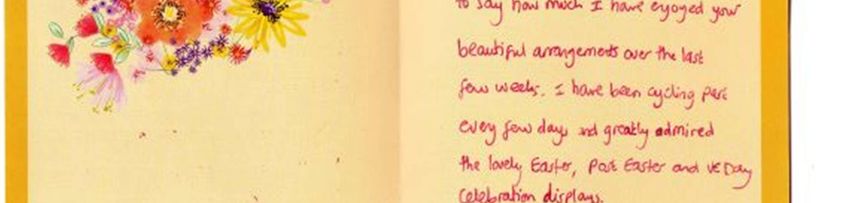 to say how much I have enjoyed your
beautiful arrangements over the last
few weeks. I have been cycling past
every few days and greatly admired
the lovely Easter, Post Easter and VE Day
Celebration displays.